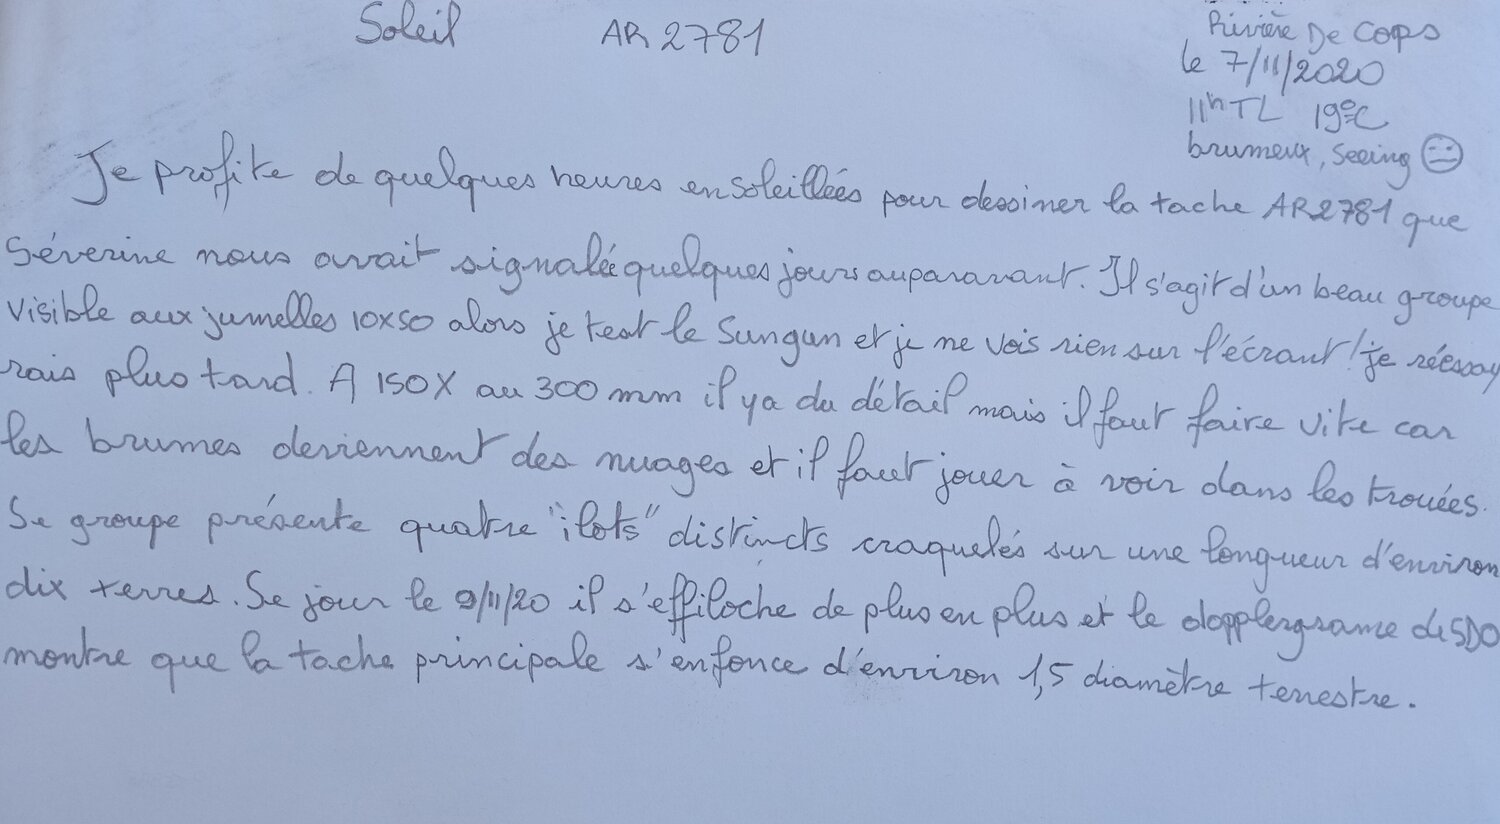 Soleil AR 2781
Rivière De Corps
le 7/11/2020
11h TL 19°C
brumeux, seeing 😐
Je profite de quelques heures ensoleillées pour dessiner la tache AR2781 que
Séverine nous avait signalée quelques jours auparavant. Il s'agit d'un beau groupe
visible aux jumelles 10x50 alors je test le Sungun et je ne vois rien sur l'écrant! je réessay
rais plus tard. A 150X au 300 mm il y a du détail mais il faut faire vite car
les brumes deviennent des nuages et il faut jouer à voir dans les trouées.
Se groupe présente quatre "ilots" distincts craquelés sur une longueur d'environ
dix terres. Se jour le 9/11/20 il s'effiloche de plus en plus et le dopplergrame de SDO
montre que la tache principale s'enfonce d'environ 1,5 diamètre terrestre.